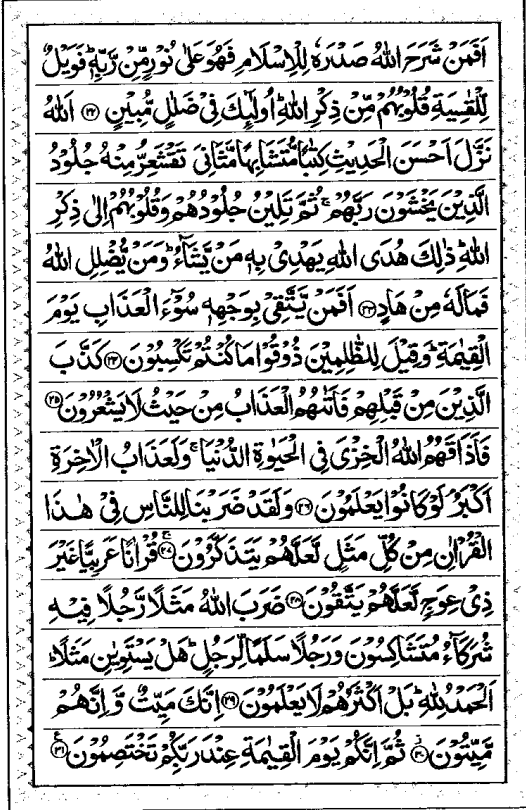 اَفَمَنْ شَرَحَ اللّٰهُ صَدْرَهٗ لِلْاِسْلَامِ فَهُوَ عَلٰى نُوْرٍ مِّنْ رَّبِّهٖ ؕ فَوَيْلٌ
لِّلْقٰسِيَةِ قُلُوْبُهُمْ مِّنْ ذِكْرِ اللّٰهِ ؕ اُولٰٓئِكَ فِىْ ضَلٰلٍ مُّبِيْنٍ ﴿۲۲﴾ اَللّٰهُ
نَزَّلَ اَحْسَنَ الْحَدِيْثِ كِتٰبًا مُّتَشَابِهًا مَّثَانِىَ تَقْشَعِرُّ مِنْهُ جُلُوْدُ
الَّذِيْنَ يَخْشَوْنَ رَبَّهُمْ ۚ ثُمَّ تَلِيْنُ جُلُوْدُهُمْ وَقُلُوْبُهُمْ اِلٰى ذِكْرِ
اللّٰهِ ؕ ذٰلِكَ هُدَى اللّٰهِ يَهْدِىْ بِهٖ مَنْ يَّشَآءُ ؕ وَمَنْ يُّضْلِلِ اللّٰهُ
فَمَا لَهٗ مِنْ هَادٍ ﴿۲۳﴾ اَفَمَنْ يَّتَّقِىْ بِوَجْهِهٖ سُوْٓءَ الْعَذَابِ يَوْمَ
الْقِيٰمَةِ ؕ وَقِيْلَ لِلظّٰلِمِيْنَ ذُوْقُوْا مَا كُنْتُمْ تَكْسِبُوْنَ ﴿۲۴﴾ كَذَّبَ
الَّذِيْنَ مِنْ قَبْلِهِمْ فَاَتٰٮهُمُ الْعَذَابُ مِنْ حَيْثُ لَا يَشْعُرُوْنَ ﴿۲۵﴾
فَاَذَاقَهُمُ اللّٰهُ الْخِزْىَ فِى الْحَيٰوةِ الدُّنْيَا ۚ وَلَعَذَابُ الْاٰخِرَةِ
اَكْبَرُ ۘ لَوْ كَانُوْا يَعْلَمُوْنَ ﴿۲۶﴾ وَلَقَدْ ضَرَبْنَا لِلنَّاسِ فِىْ هٰذَا
الْقُرْاٰنِ مِنْ كُلِّ مَثَلٍ لَّعَلَّهُمْ يَتَذَكَّرُوْنَ ۚ﴿۲۷﴾ قُرْاٰنًا عَرَبِيًّا غَيْرَ
ذِىْ عِوَجٍ لَّعَلَّهُمْ يَتَّقُوْنَ ﴿۲۸﴾ ضَرَبَ اللّٰهُ مَثَلًا رَّجُلًا فِيْهِ
شُرَكَآءُ مُتَشٰكِسُوْنَ وَرَجُلًا سَلَمًا لِّرَجُلٍ ؕ هَلْ يَسْتَوِيٰنِ مَثَلًا ؕ
اَلْحَمْدُ لِلّٰهِ ۚ بَلْ اَكْثَرُهُمْ لَا يَعْلَمُوْنَ ﴿۲۹﴾ اِنَّكَ مَيِّتٌ وَّاِنَّهُمْ
مَّيِّتُوْنَ ؗ﴿۳۰﴾ ثُمَّ اِنَّكُمْ يَوْمَ الْقِيٰمَةِ عِنْدَ رَبِّكُمْ تَخْتَصِمُوْنَ ﴿۳۱﴾